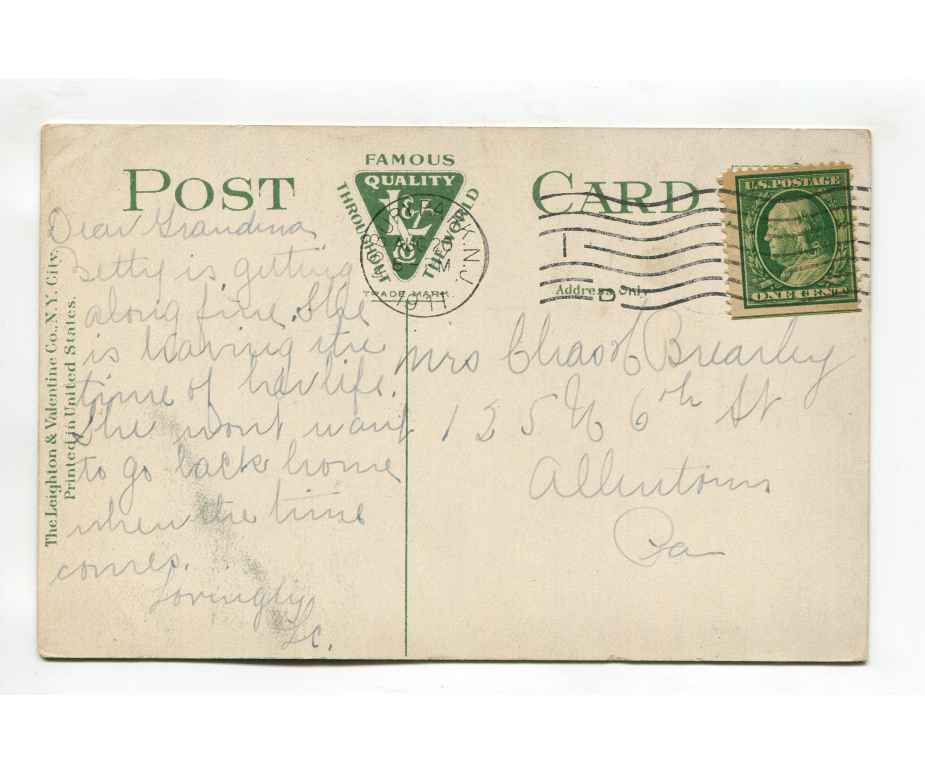 POST CARD
FAMOUS
QUALITY
THROUGHOUT THE WORLD
L&V
TRADE MARK.
PARK, N.J.
1911
U.S. POSTAGE
ONE CENT
Address Only
The Leighton & Valentine Co., N.Y. City.
Printed in United States.
Dear Grandma
Betty is getting
along fine. She
is having the
time of her life.
She wont want
to go back home
when the time
comes.
Lovingly
Mrs Chas Brearley
125 N 6th St
Allentown
Pa